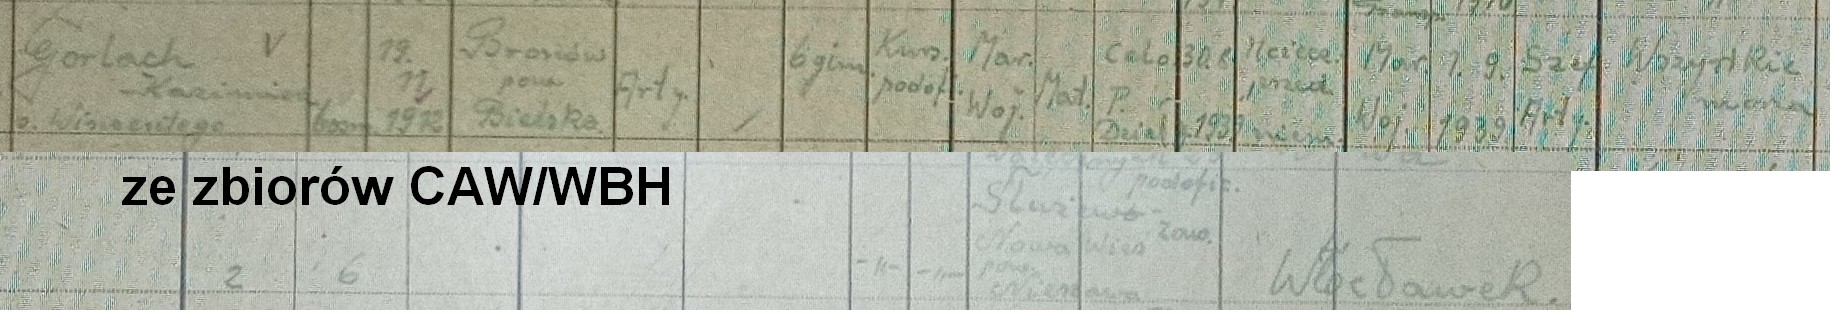 Gorlach V
Kazimierz
o. Wincentego
bom.
19.
11.
1912
Bronów
pow.
Bielsko.
Arty.
6 gim.
Kurs.
podof.
Mar.
Woj.
Mat.
Celo
P.
Dział
30.8.
1939
przed
niem.
Mar.
Woj.
1. 9.
1939
Szef
Arty.
Wszystkie
miana
ze zbiorów CAW/WBH
2 6
-"- -"-
podofic.
Służewo-
Nowa Wieś
pow.
Nieszawa
Zawo.
Włocławek.